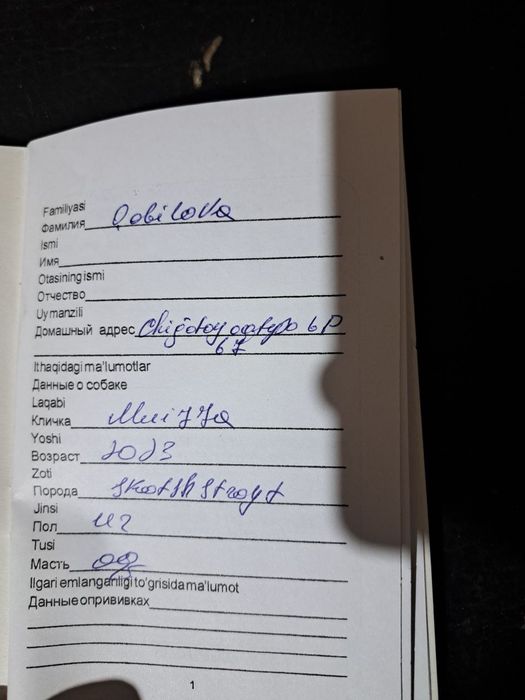 Familiyasi
Фамилия Qobilova
Ismi
Имя
Otasining ismi
Отчество
Uy manzili
Домашный адрес Chig'atoy 6 P
67
It haqidagi ma'lumotlar
Данные о собаке
Laqabi
Кличка
Yoshi
Возраст 2023
Zoti
Порода
Jinsi
Пол
Tusi
Масть
Ilgari emlanganligi to'grisida ma'lumot
Данные опрививках
1